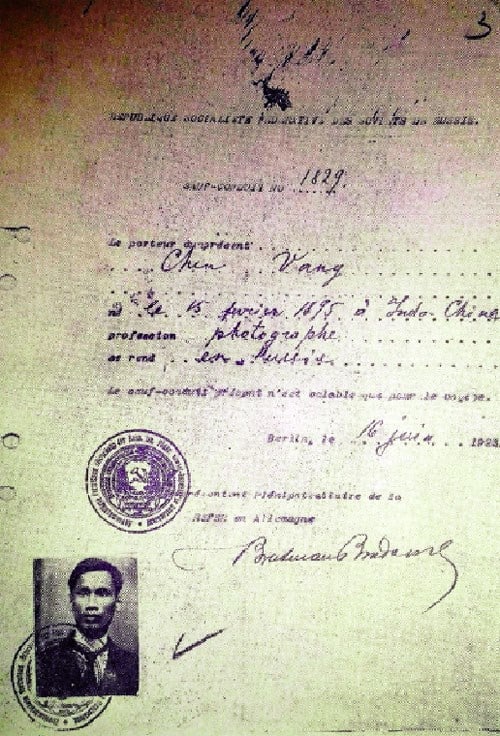 3
REPUBLIQUE SOCIALISTE FEDERATIVE DES SOVIETS DE RUSSIE.
SAUF-CONDUIT NO 1829.
Le porteur du présent
Chen Vang
né le 15 fevrier 1895 à Indo Chine
profession photographe
se rend en Russie.
Le sauf-conduit présent n'est valable que pour le voyage.
Berlin, le 16 juin 1923
représentant Plénipotentiaire de la
RSFSR en Allemagne